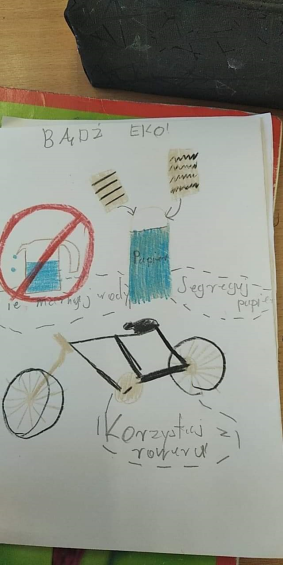 BĄDŹ EKO!
Papier
ie marnuj wody
Segreguj
papie
Korzystaj z
roweru